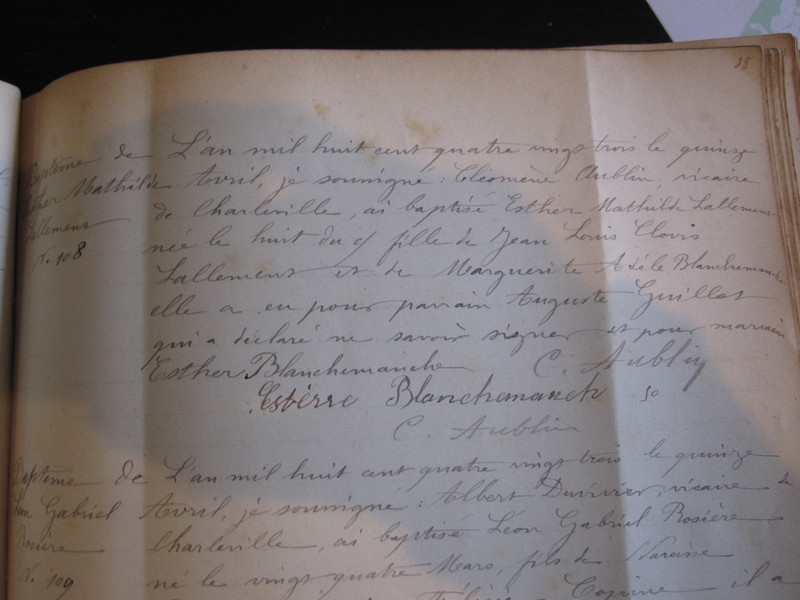 Baptême de
Esther Mathilde
Lallement
N. 108
L'an mil huit cent quatre vingt trois le quinze
Avril, je soussigné : Cléomène Aublin, vicaire
de Charleville, ai baptisé Esther Mathilde Lallement
née le huit du ct fille de Jean Louis Clovis
Lallement et de Marguerite Adèle Blanchemanche
elle a eu pour parrain Auguste Guillot
qui a déclaré ne savoir signer et pour marraine
Esther Blanchemanche C. Aublin
Estérre Blanchemanch
C. Aublin
Baptême de
Léon Gabriel
Rosière
N. 109
L'an mil huit cent quatre vingt trois le quinze
Avril, je soussigné : Albert Duvivier, vicaire de
Charleville, ai baptisé Léon Gabriel Rosière
né le vingt quatre Mars, fils de Narcisse
il a